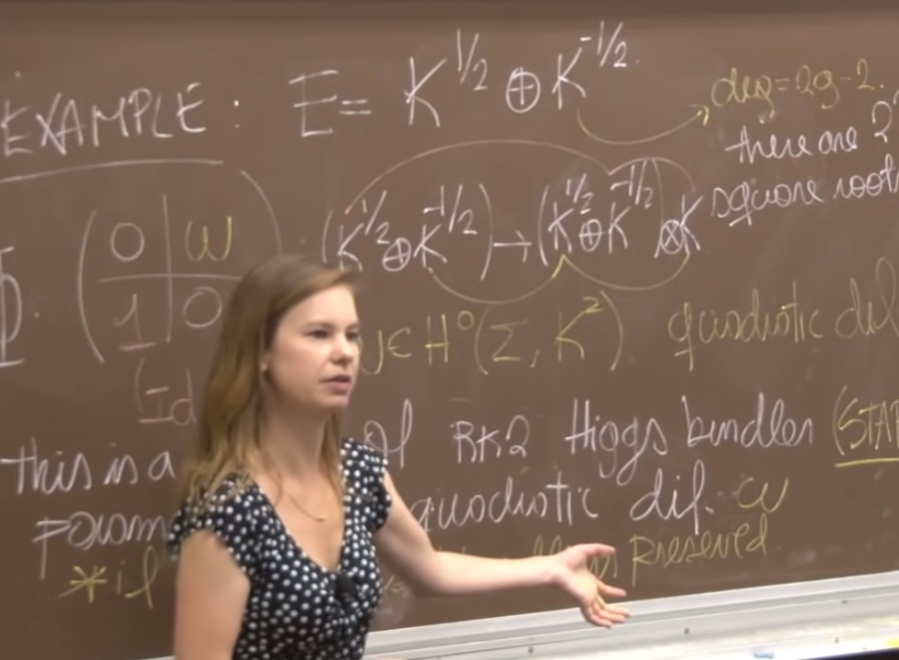 EXAMPLE: E = K^{1/2} ⊕ K^{-1/2}.
deg = 2g-2.
there are 2
square root
Φ: (0 | ω
1 | 0) : (K^{1/2} ⊕ K^{-1/2}) → (K^{1/2} ⊕ K^{-1/2}) ⊗ K
ω ∈ H^0(Σ, K^2). quadratic
this is a of RK2 Higgs bundles (STA
quadratic dif. ω
*if preserved.